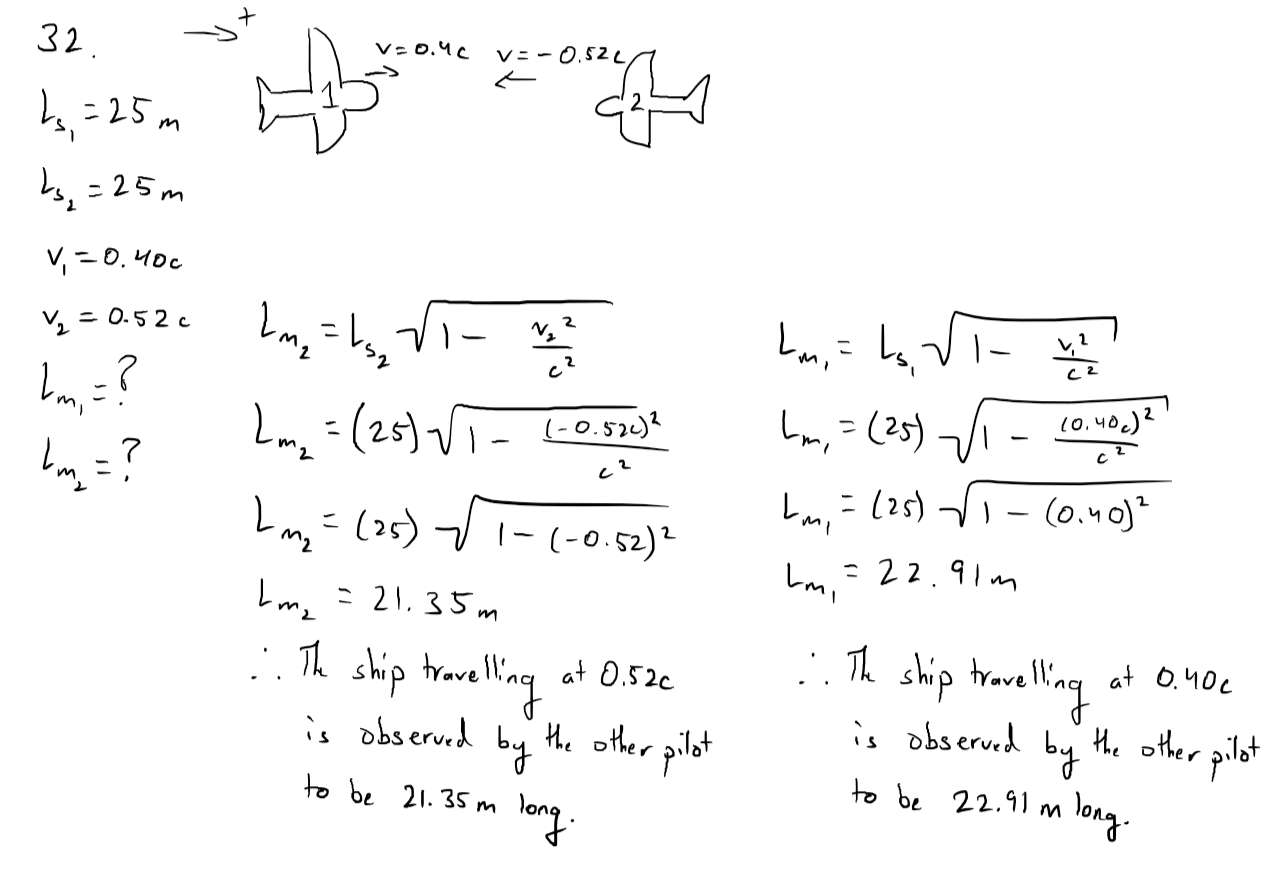 32.
→+
v=0.4c v=-0.52c
1 2
Ls₁ = 25 m
Ls₂ = 25 m
v₁ = 0.40c
v₂ = 0.52c
Lm₁ = ?
Lm₂ = ?
Lm₂ = Ls₂ √(1 - v₂²/c²)
Lm₂ = (25) √(1 - (-0.52c)²/c²)
Lm₂ = (25) √(1 - (-0.52)²)
Lm₂ = 21.35 m
∴ The ship travelling at 0.52c
is observed by the other pilot
to be 21.35 m long.
Lm₁ = Ls₁ √(1 - v₁²/c²)
Lm₁ = (25) √(1 - (0.40c)²/c²)
Lm₁ = (25) √(1 - (0.40)²)
Lm₁ = 22.91 m
∴ The ship travelling at 0.40c
is observed by the other pilot
to be 22.91 m long.